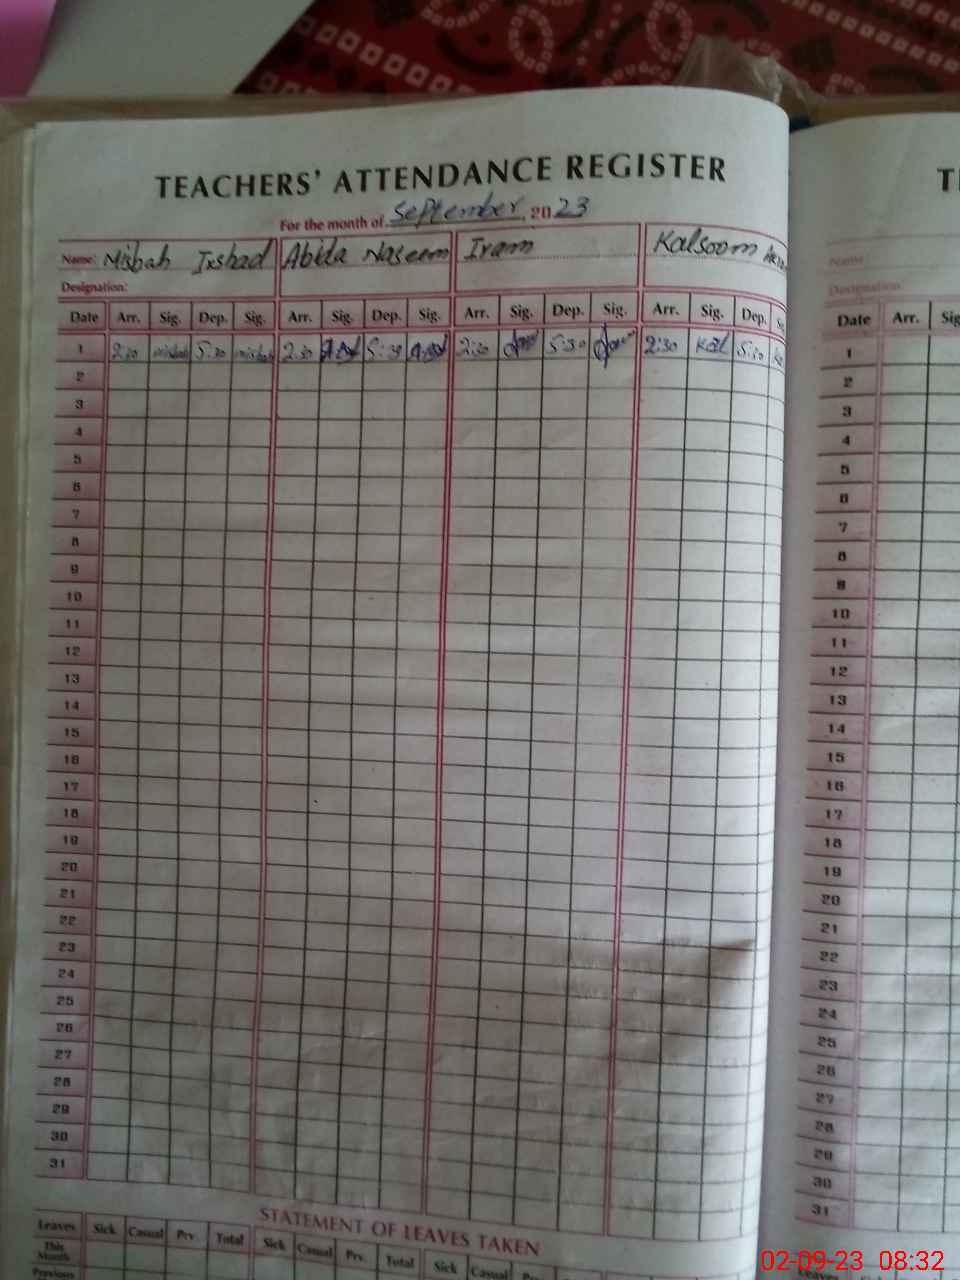 TEACHERS' ATTENDANCE REGISTER
For the month of September, 2023
Name: Misbah Irshad Abida Naseem Iram Kalsoom
Designation:
Date Arr. Sig. Dep. Sig. Arr. Sig. Dep. Sig. Arr. Sig. Dep. Sig. Arr. Sig. Dep.
1 2:30 misbah 5:30 misbah 2:30 5:30 2:30 5:30 2:30 Kal 5:30
2
3
4
5
6
7
8
9
10
11
12
13
14
15
16
17
18
19
20
21
22
23
24
25
26
27
28
29
30
31
STATEMENT OF LEAVES TAKEN
Leaves Sick Casual Prv. Total Sick Casual Prv. Total Sick Casual
This Month
Previous
Name
Designation:
Date Arr.
1
2
3
4
5
6
7
8
9
10
11
12
13
14
15
16
17
18
19
20
21
22
23
24
25
26
27
28
29
30
31
02-09-23 08:32